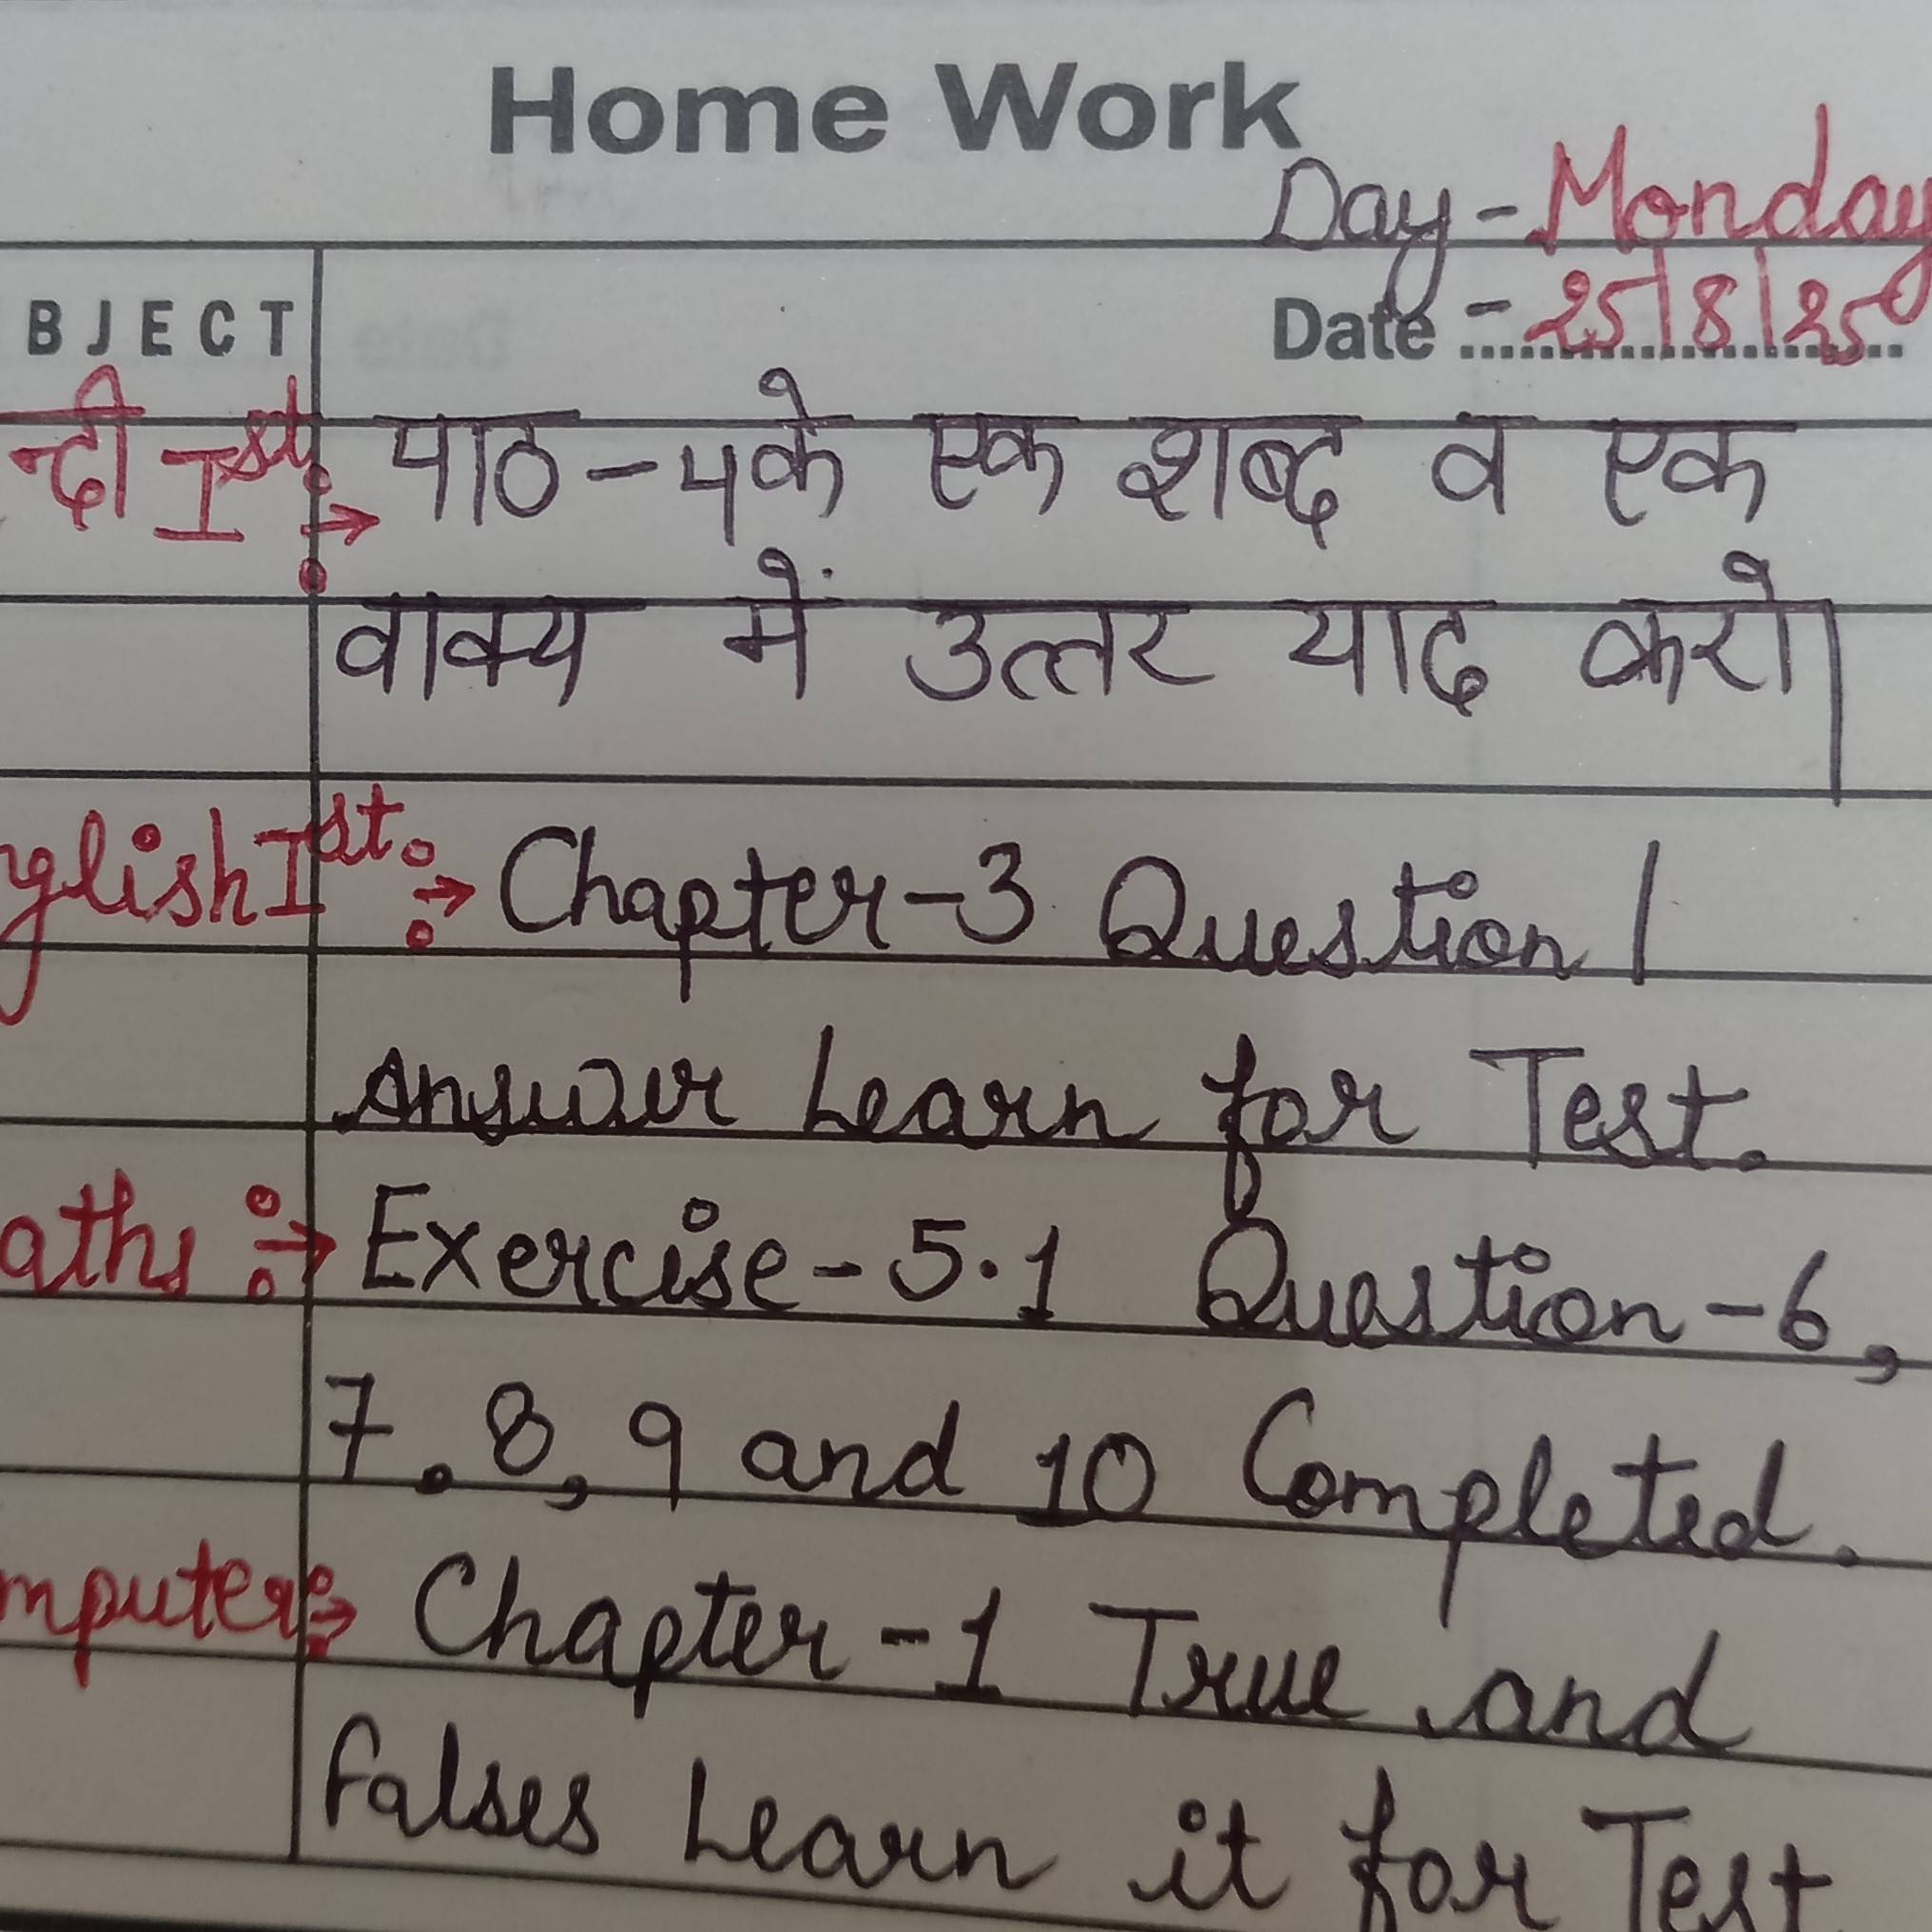 Home Work
Day - Monday
BJECT Date - 25/8/25
न्दी Ist :→ पाठ - 4 के एक शब्द व एक
वाक्य में उत्तर याद करो।
nglish Ist :→ Chapter-3 Question 1
Answer Learn for Test.
aths :→ Exercise - 5.1 Question - 6,
7. 8, 9 and 10 Completed.
mputer :→ Chapter - 1 True and
falses Learn it for Test